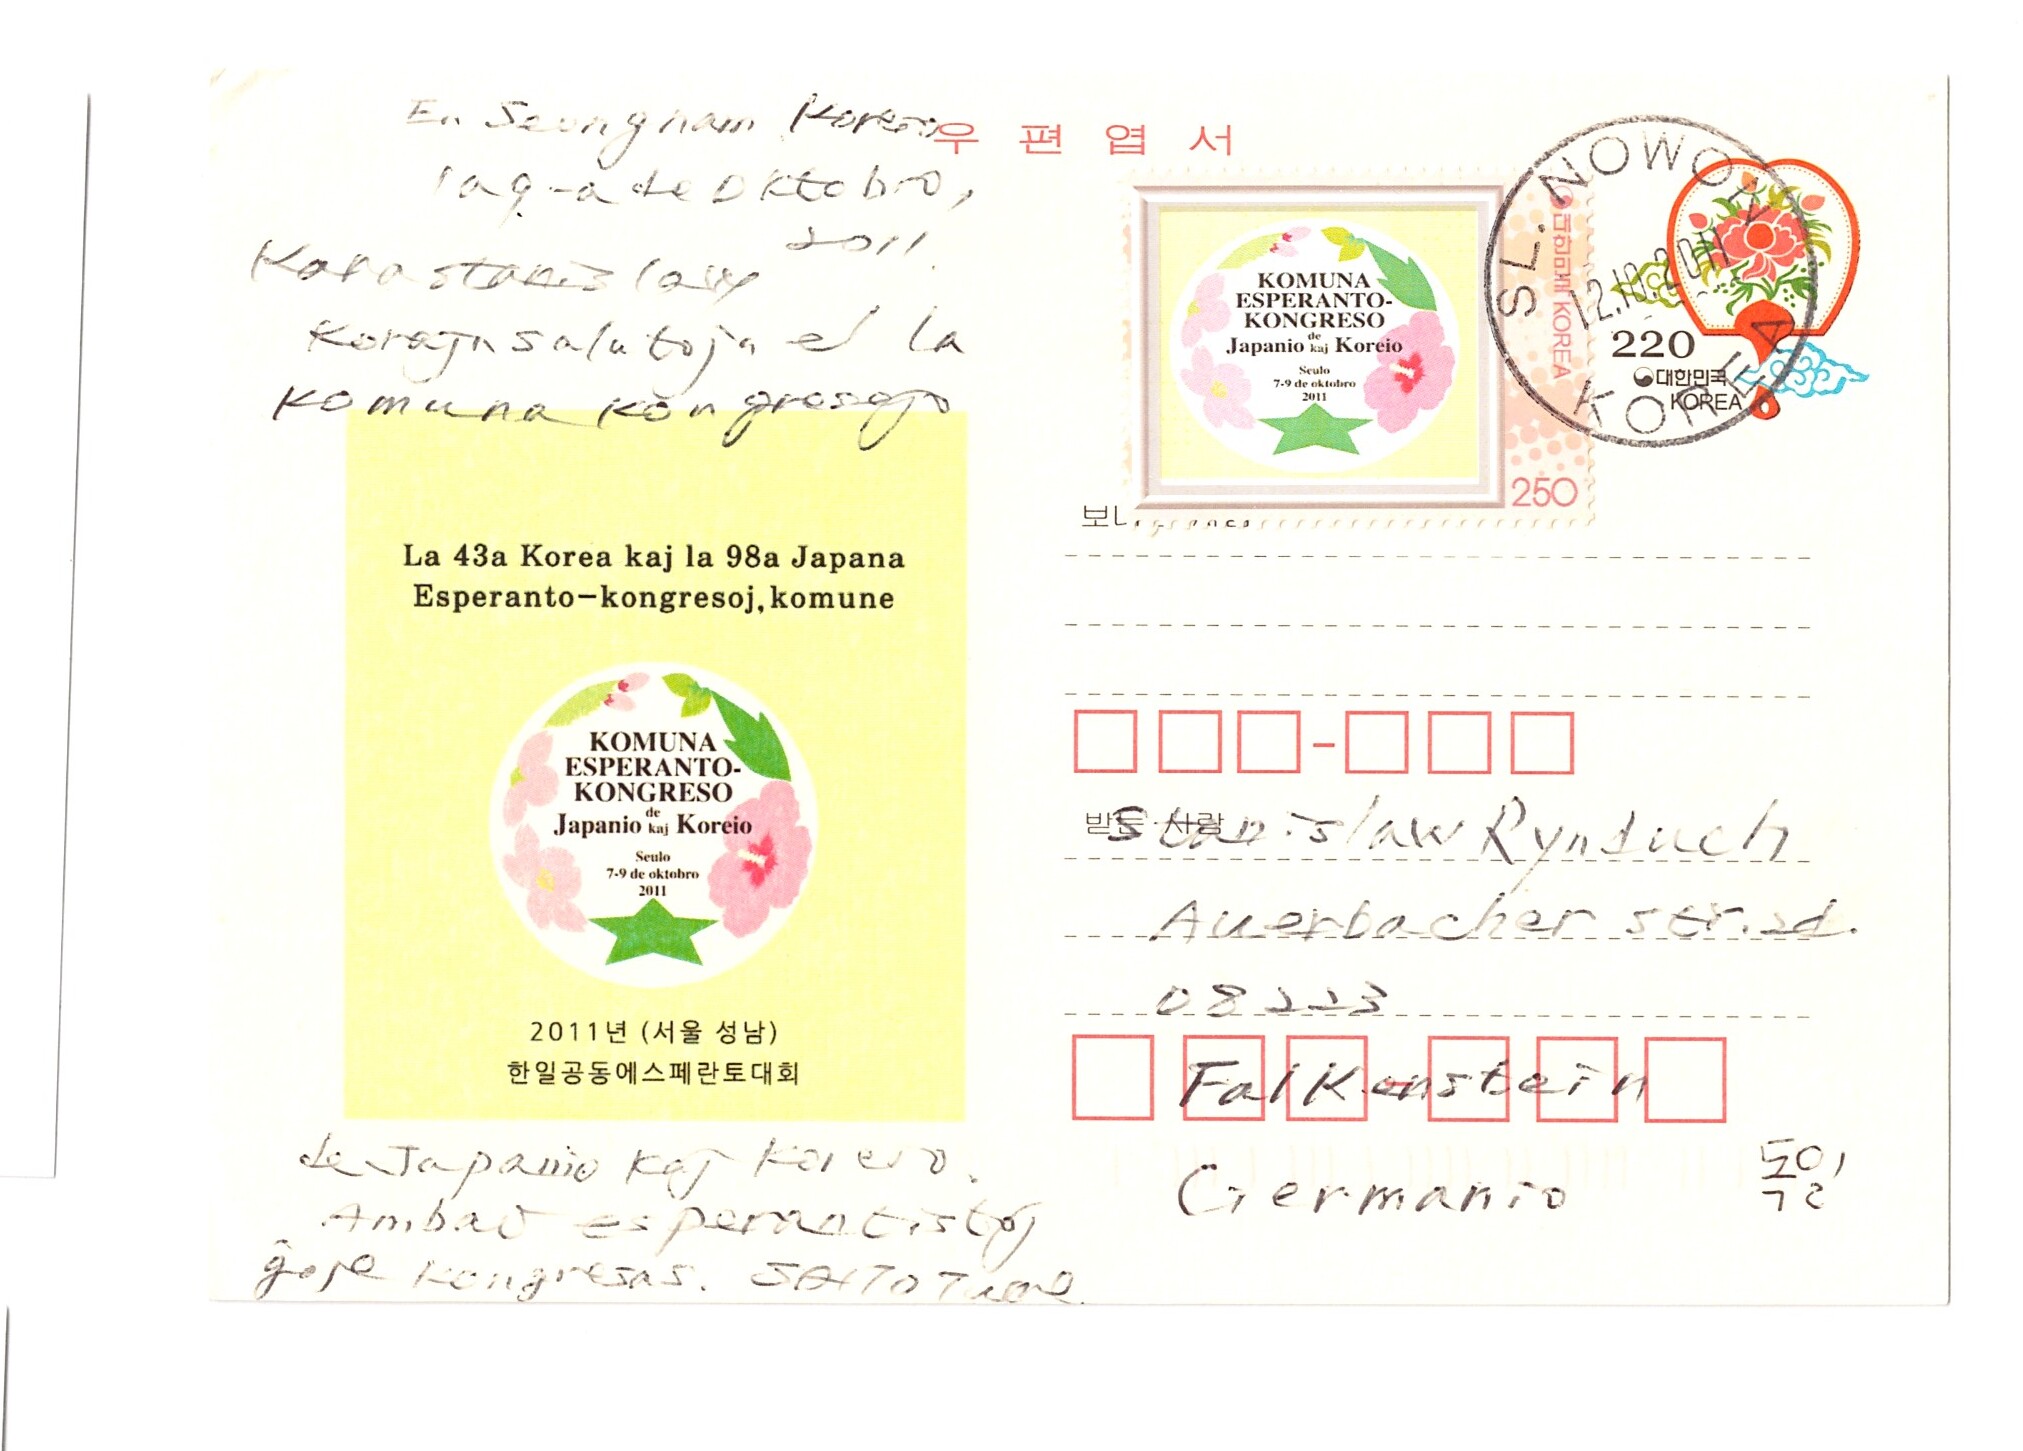 En Seongnam Koreio
la 9-a de Oktobro,
2011.
Kara Stanislaw
Korajn salutojn el la
Komuna Kongresejo
우편엽서
KOMUNA
ESPERANTO-
KONGRESO
de
Japanio kaj Koreio
Seulo
7-9 de oktobro
2011
대한민국 KOREA
250
SL. NOWON
12.10.2011
KOREA
220
대한민국
KOREA
La 43a Korea kaj la 98a Japana
Esperanto-kongresoj, komune
KOMUNA
ESPERANTO-
KONGRESO
de
Japanio kaj Koreio
Seulo
7-9 de oktobro
2011
2011년 (서울 성남)
한일공동에스페란토대회
de Japanio kaj Koreio.
Ambaŭ esperantistoj
ĝoje kongresas. SAITO
받는 사람
Stanislaw Rynduch
Auerbacher str. 2d.
08223
Falkenstein
Germanio
독일